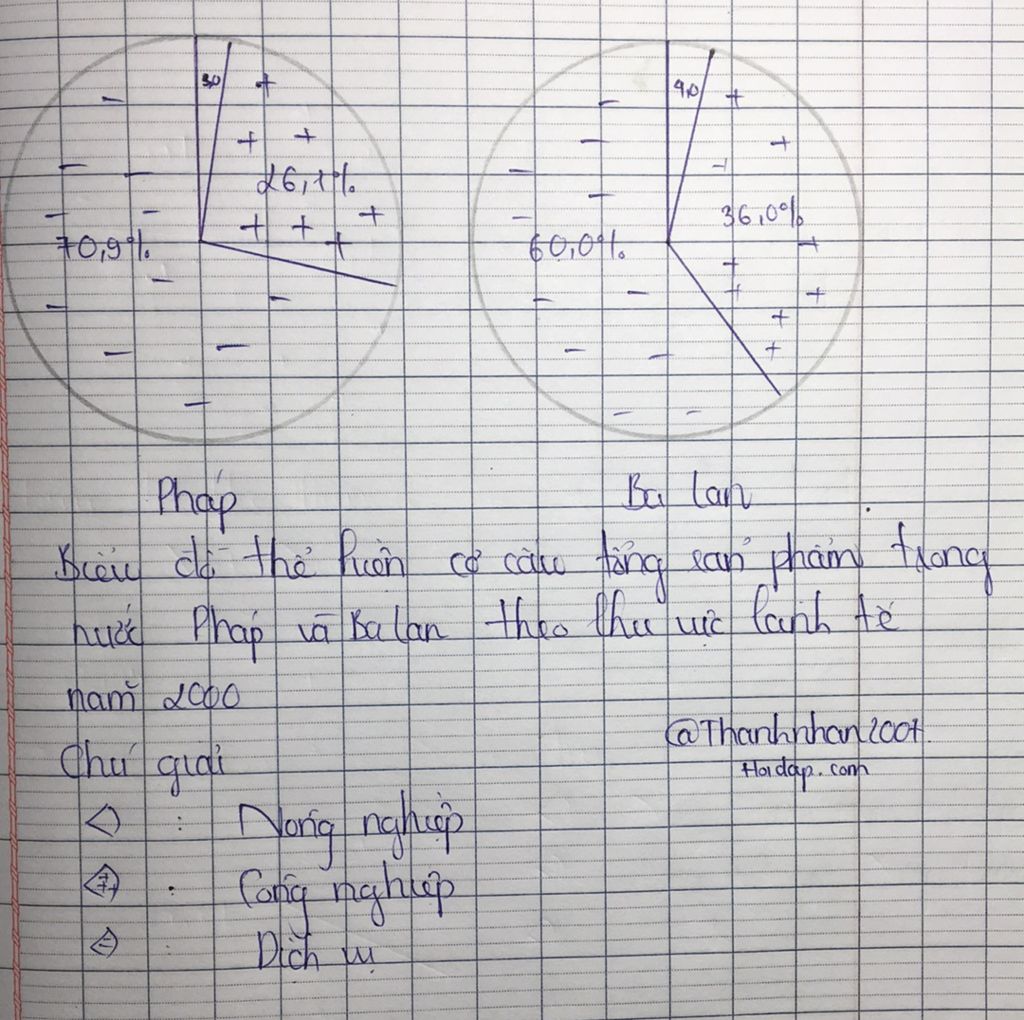 3,0
4,0
26,1%
36,0%
70,9%
60,0%
Pháp
Ba lan
Biểu đồ thể hiện cơ cấu tổng sản phẩm trong
nước Pháp và Ba lan theo khu vực kinh tế
năm 2000
@Thanhnhan2007
Chú giải
Hoidap.com
: Nông nghiệp
: Công nghiệp
: Dịch vụ